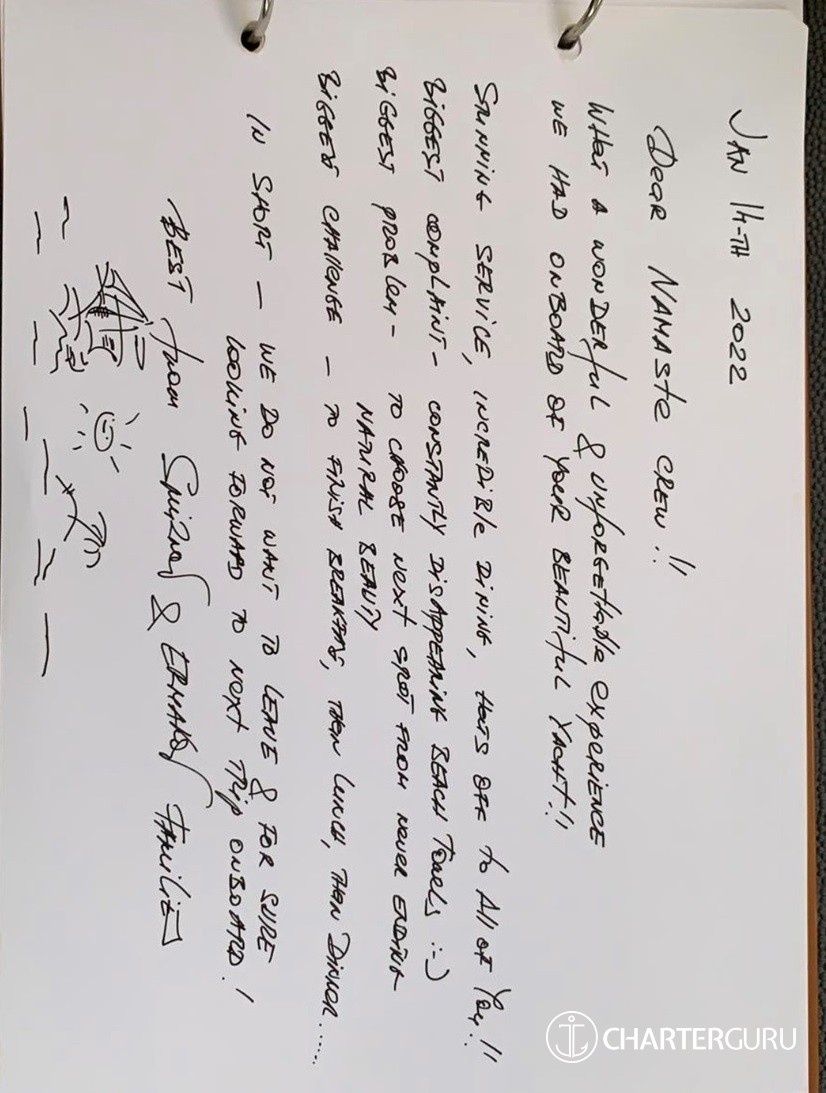 JAN 14-TH 2022
Dear NAMASTe CREW!!
What A WONDERful & UNFORGETTABLE EXPERIENCE
WE HAD ONBOARD OF YOUR BEAUTIFUL YACHT!!
STUNNING SERVICE, INCREDIBLE DINING, HATS OFF TO All OF You!!
BIGGEST COMPLAINT- CONSTANTLY DISAPPEARING BEACH TOWELS :-)
BIGGEST PROBLEM- TO CHOOSE NEXT SPOT FROM NEVER ENDING
NATURAL BEAUTY
BIGGEST CHALLENGE - TO FINISH BREAKFAST, THEN LUNCH, THEN DINNER......
IN SHORT - WE DO NOT WANT TO LEAVE & FOR SURE
LOOKING FORWARD TO NEXT TRIP ONBOARD!
BEST from Smirnof & ERMAKOf FAMILIES
CHARTERGURU